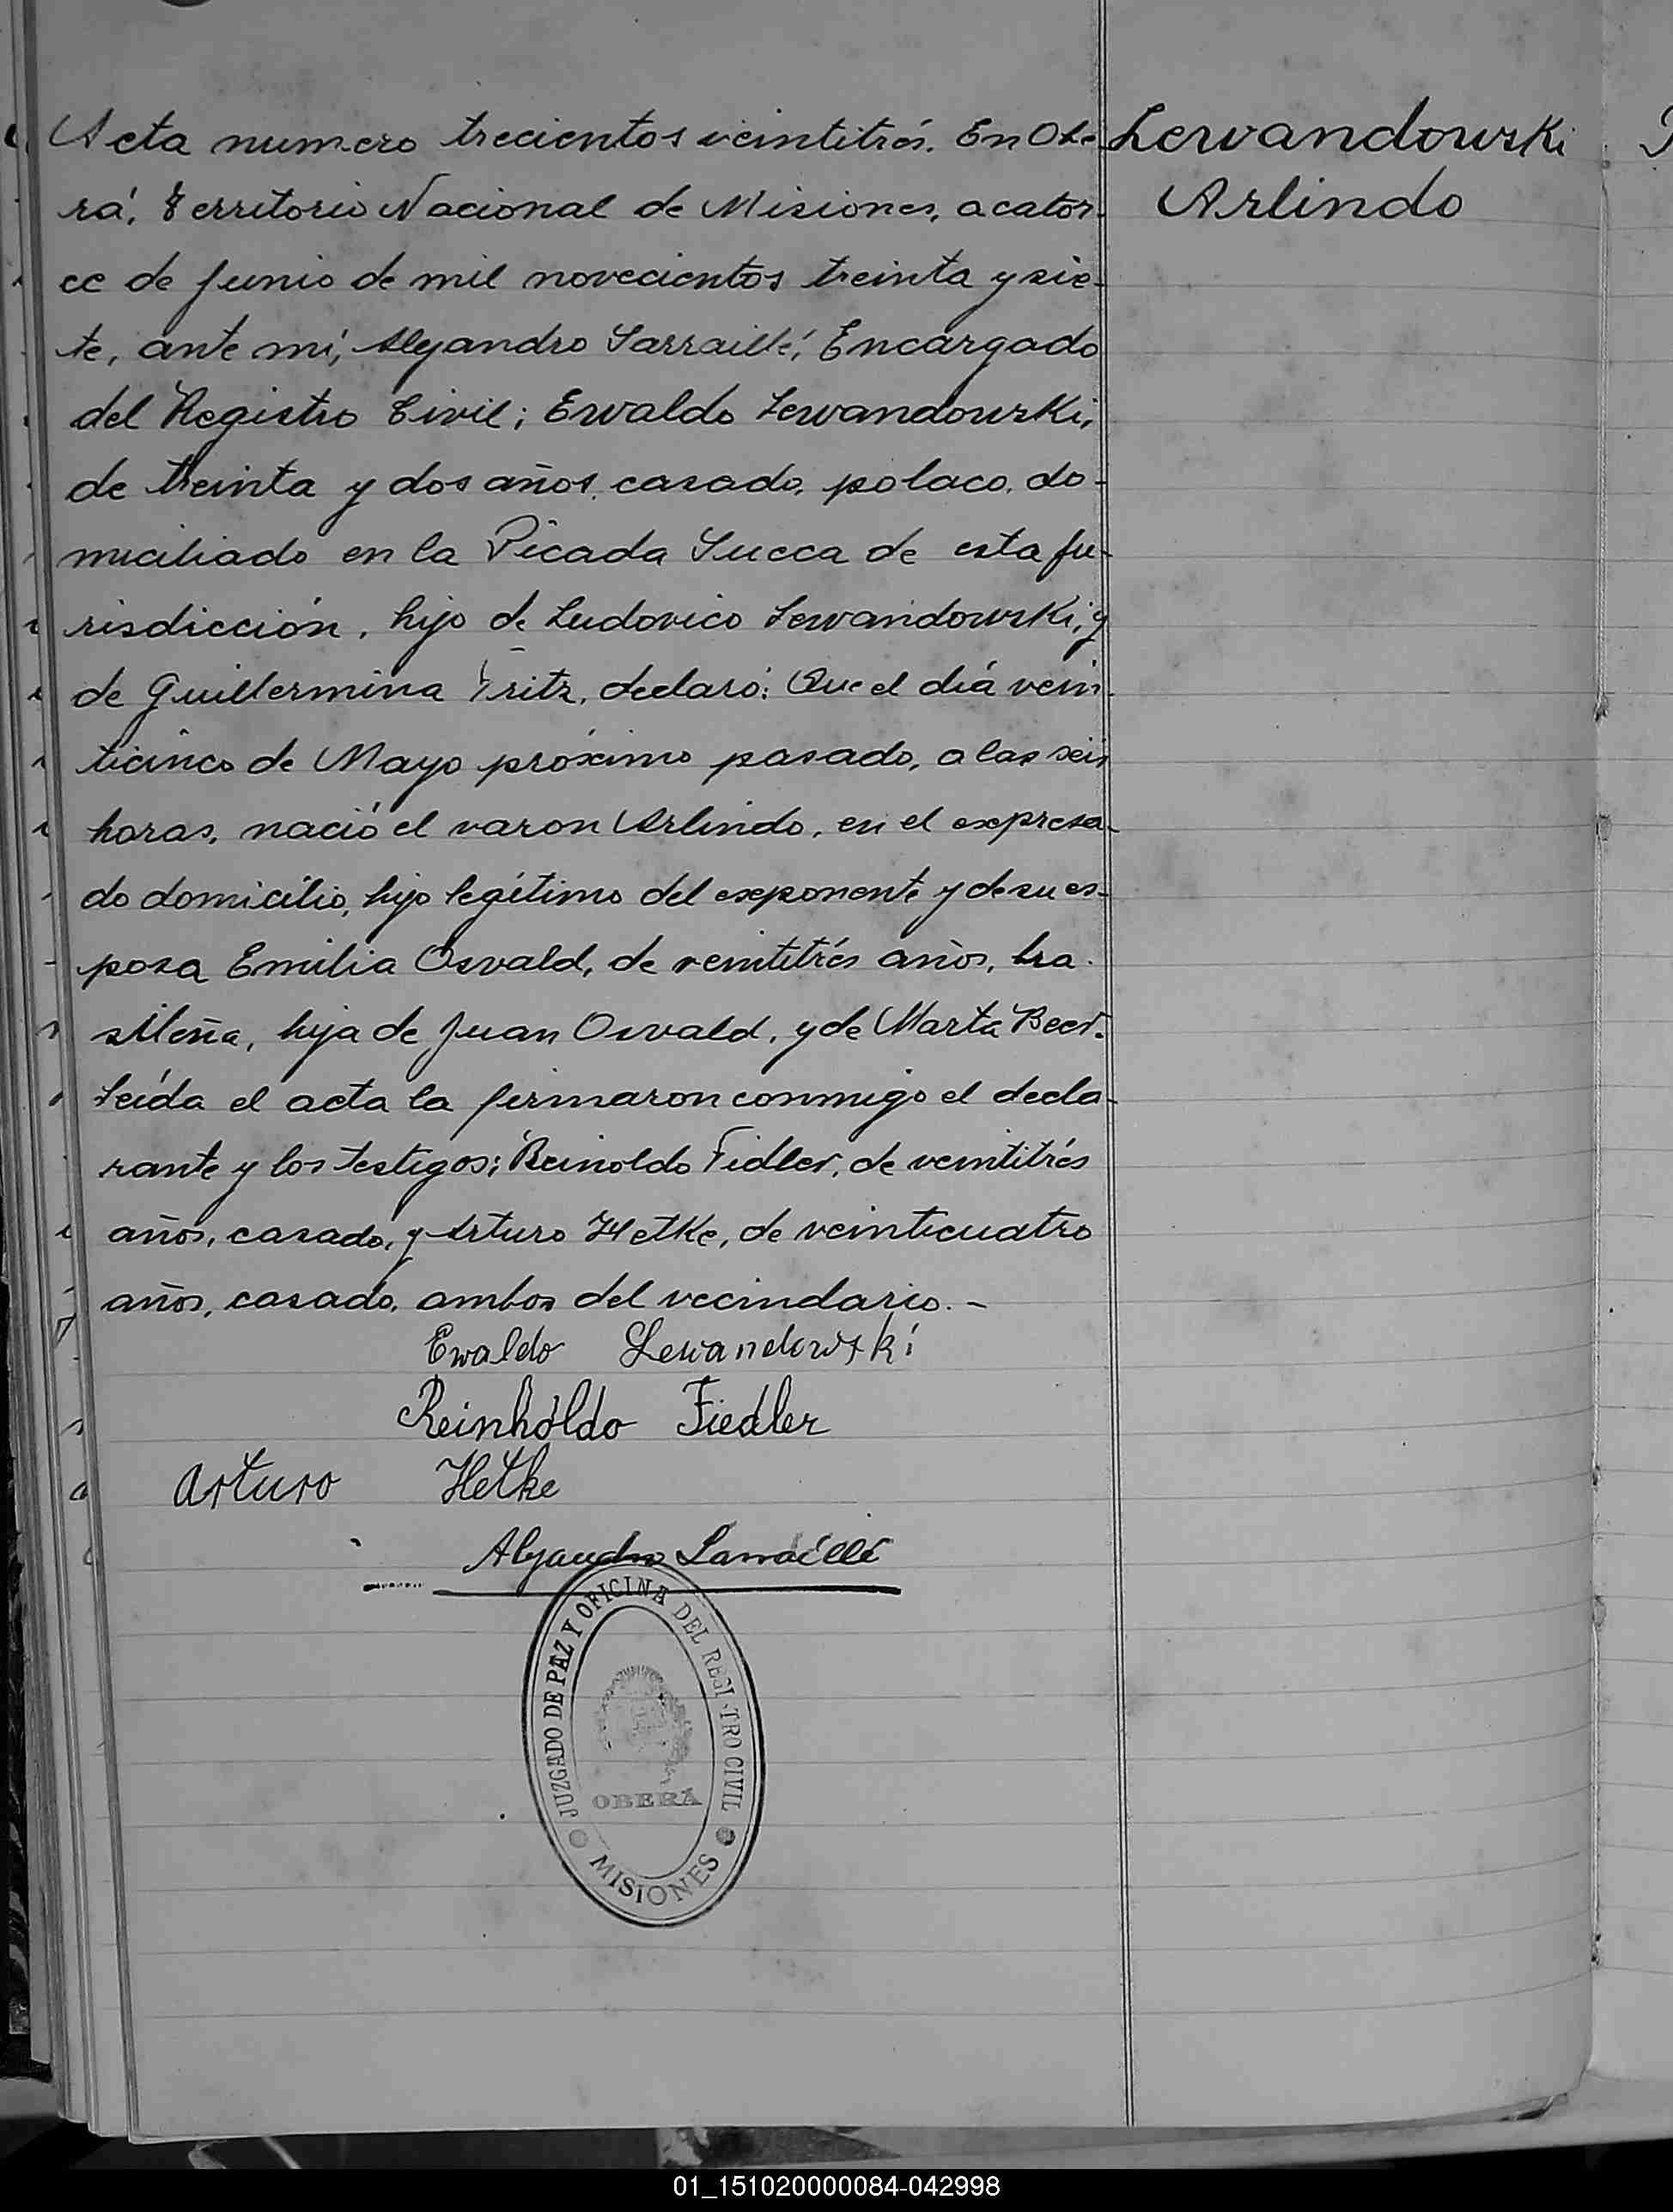 Acta numero trecientos veintitrés. En Obe-
rá, Territorio Nacional de Misiones, a cator-
ce de Junio de mil novecientos treinta y sie-
te, ante mí, Alejandro Larraillé, Encargado
del Registro Civil; Ewaldo Lewandowski,
de treinta y dos años, casado, polaco, do-
miciliado en la Picada Sueca de esta ju-
risdicción, hijo de Ludovico Lewandowski, y
de Guillermina Fritz, declaró: Que el día vein-
ticinco de Mayo próximo pasado, a las seis
horas, nació el varon Arlindo, en el expresa-
do domicilio, hijo legítimo del exponente y de su es-
posa Emilia Osvald, de veintitrés años, bra-
sileña, hija de Juan Osvald, y de Marta Beer.
Leída el acta la firmaron conmigo el decla-
rante y los testigos; Reinoldo Fidler, de veintitrés
años, casado, y Arturo Hetke, de veinticuatro
años, casado, ambos del vecindario.-
Lewandowski
Arlindo
Ewaldo Lewandowski
Reinholdo Fiedler
Arturo Hetke
Alejandro Larraillé
JUZGADO DE PAZ Y OFICINA DEL REGI TRO CIVIL
OBERÁ
MISIONES
01_151020000084-042998